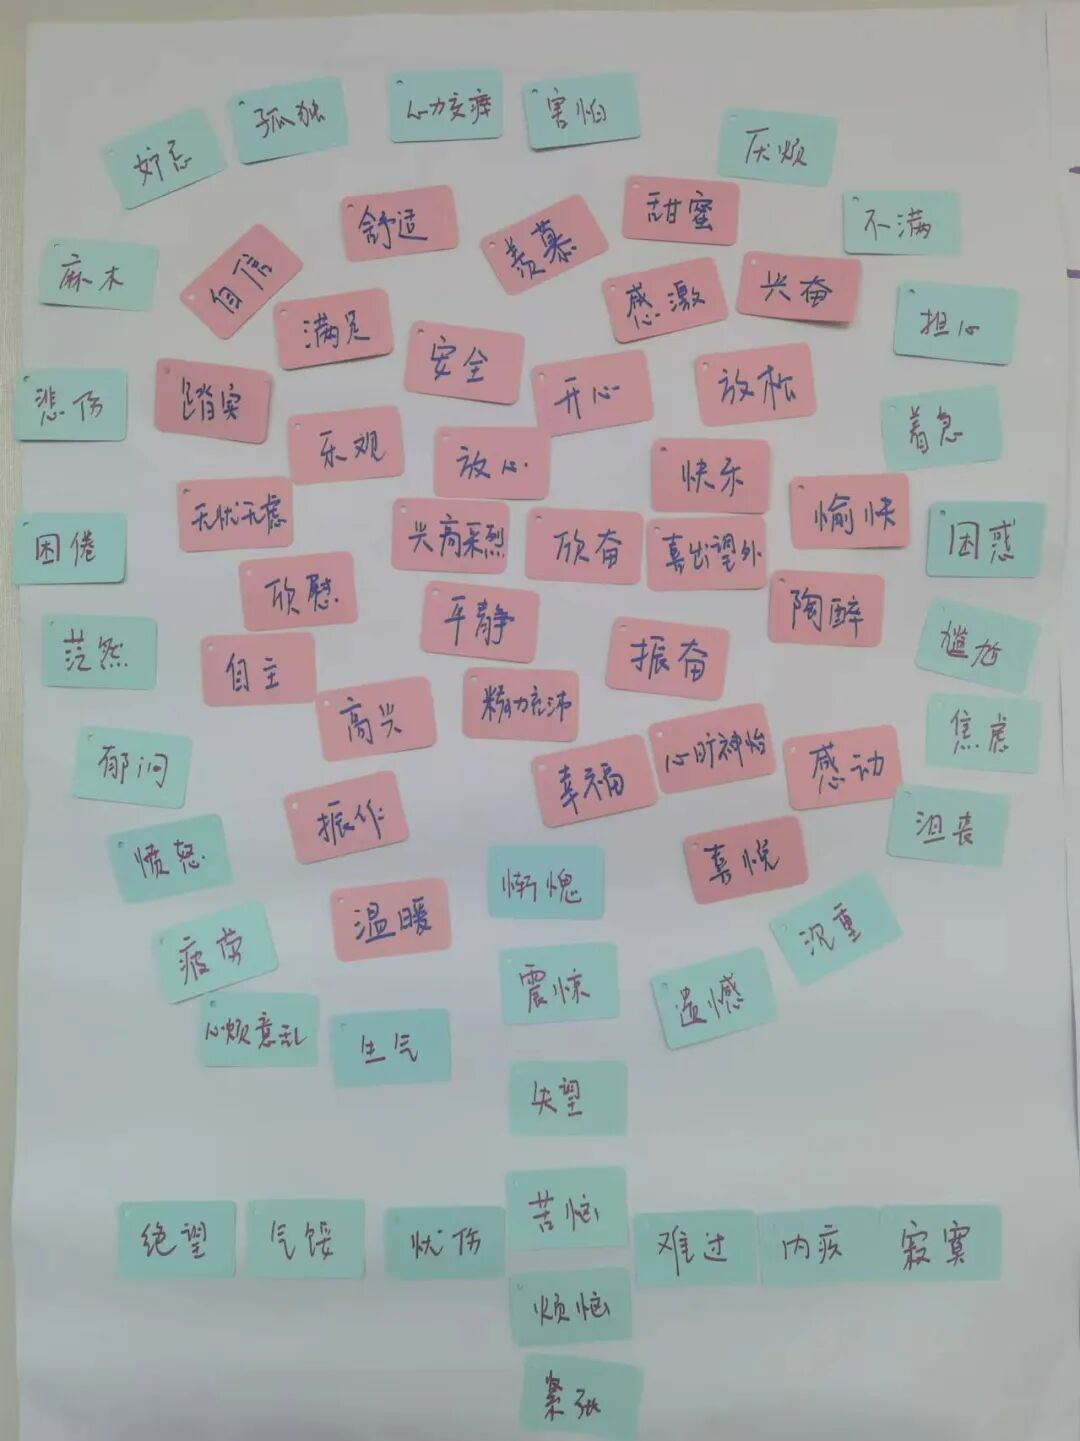 妒忌
孤独
心力交瘁
害怕
厌烦
不满
舒适
羡慕
甜蜜
麻木
自信
满足
感激
兴奋
担心
悲伤
踏实
安全
开心
放松
着急
乐观
放心
快乐
愉快
困倦
无忧无虑
兴高采烈
欣奋
喜出望外
困惑
欣慰
平静
振奋
陶醉
尴尬
茫然
自主
高兴
精力充沛
焦虑
郁闷
振作
幸福
心旷神怡
感动
沮丧
愤怒
温暖
惭愧
喜悦
沉重
疲劳
震惊
遗憾
心烦意乱
生气
失望
绝望
气馁
忧伤
苦恼
难过
内疚
寂寞
烦恼
紧张